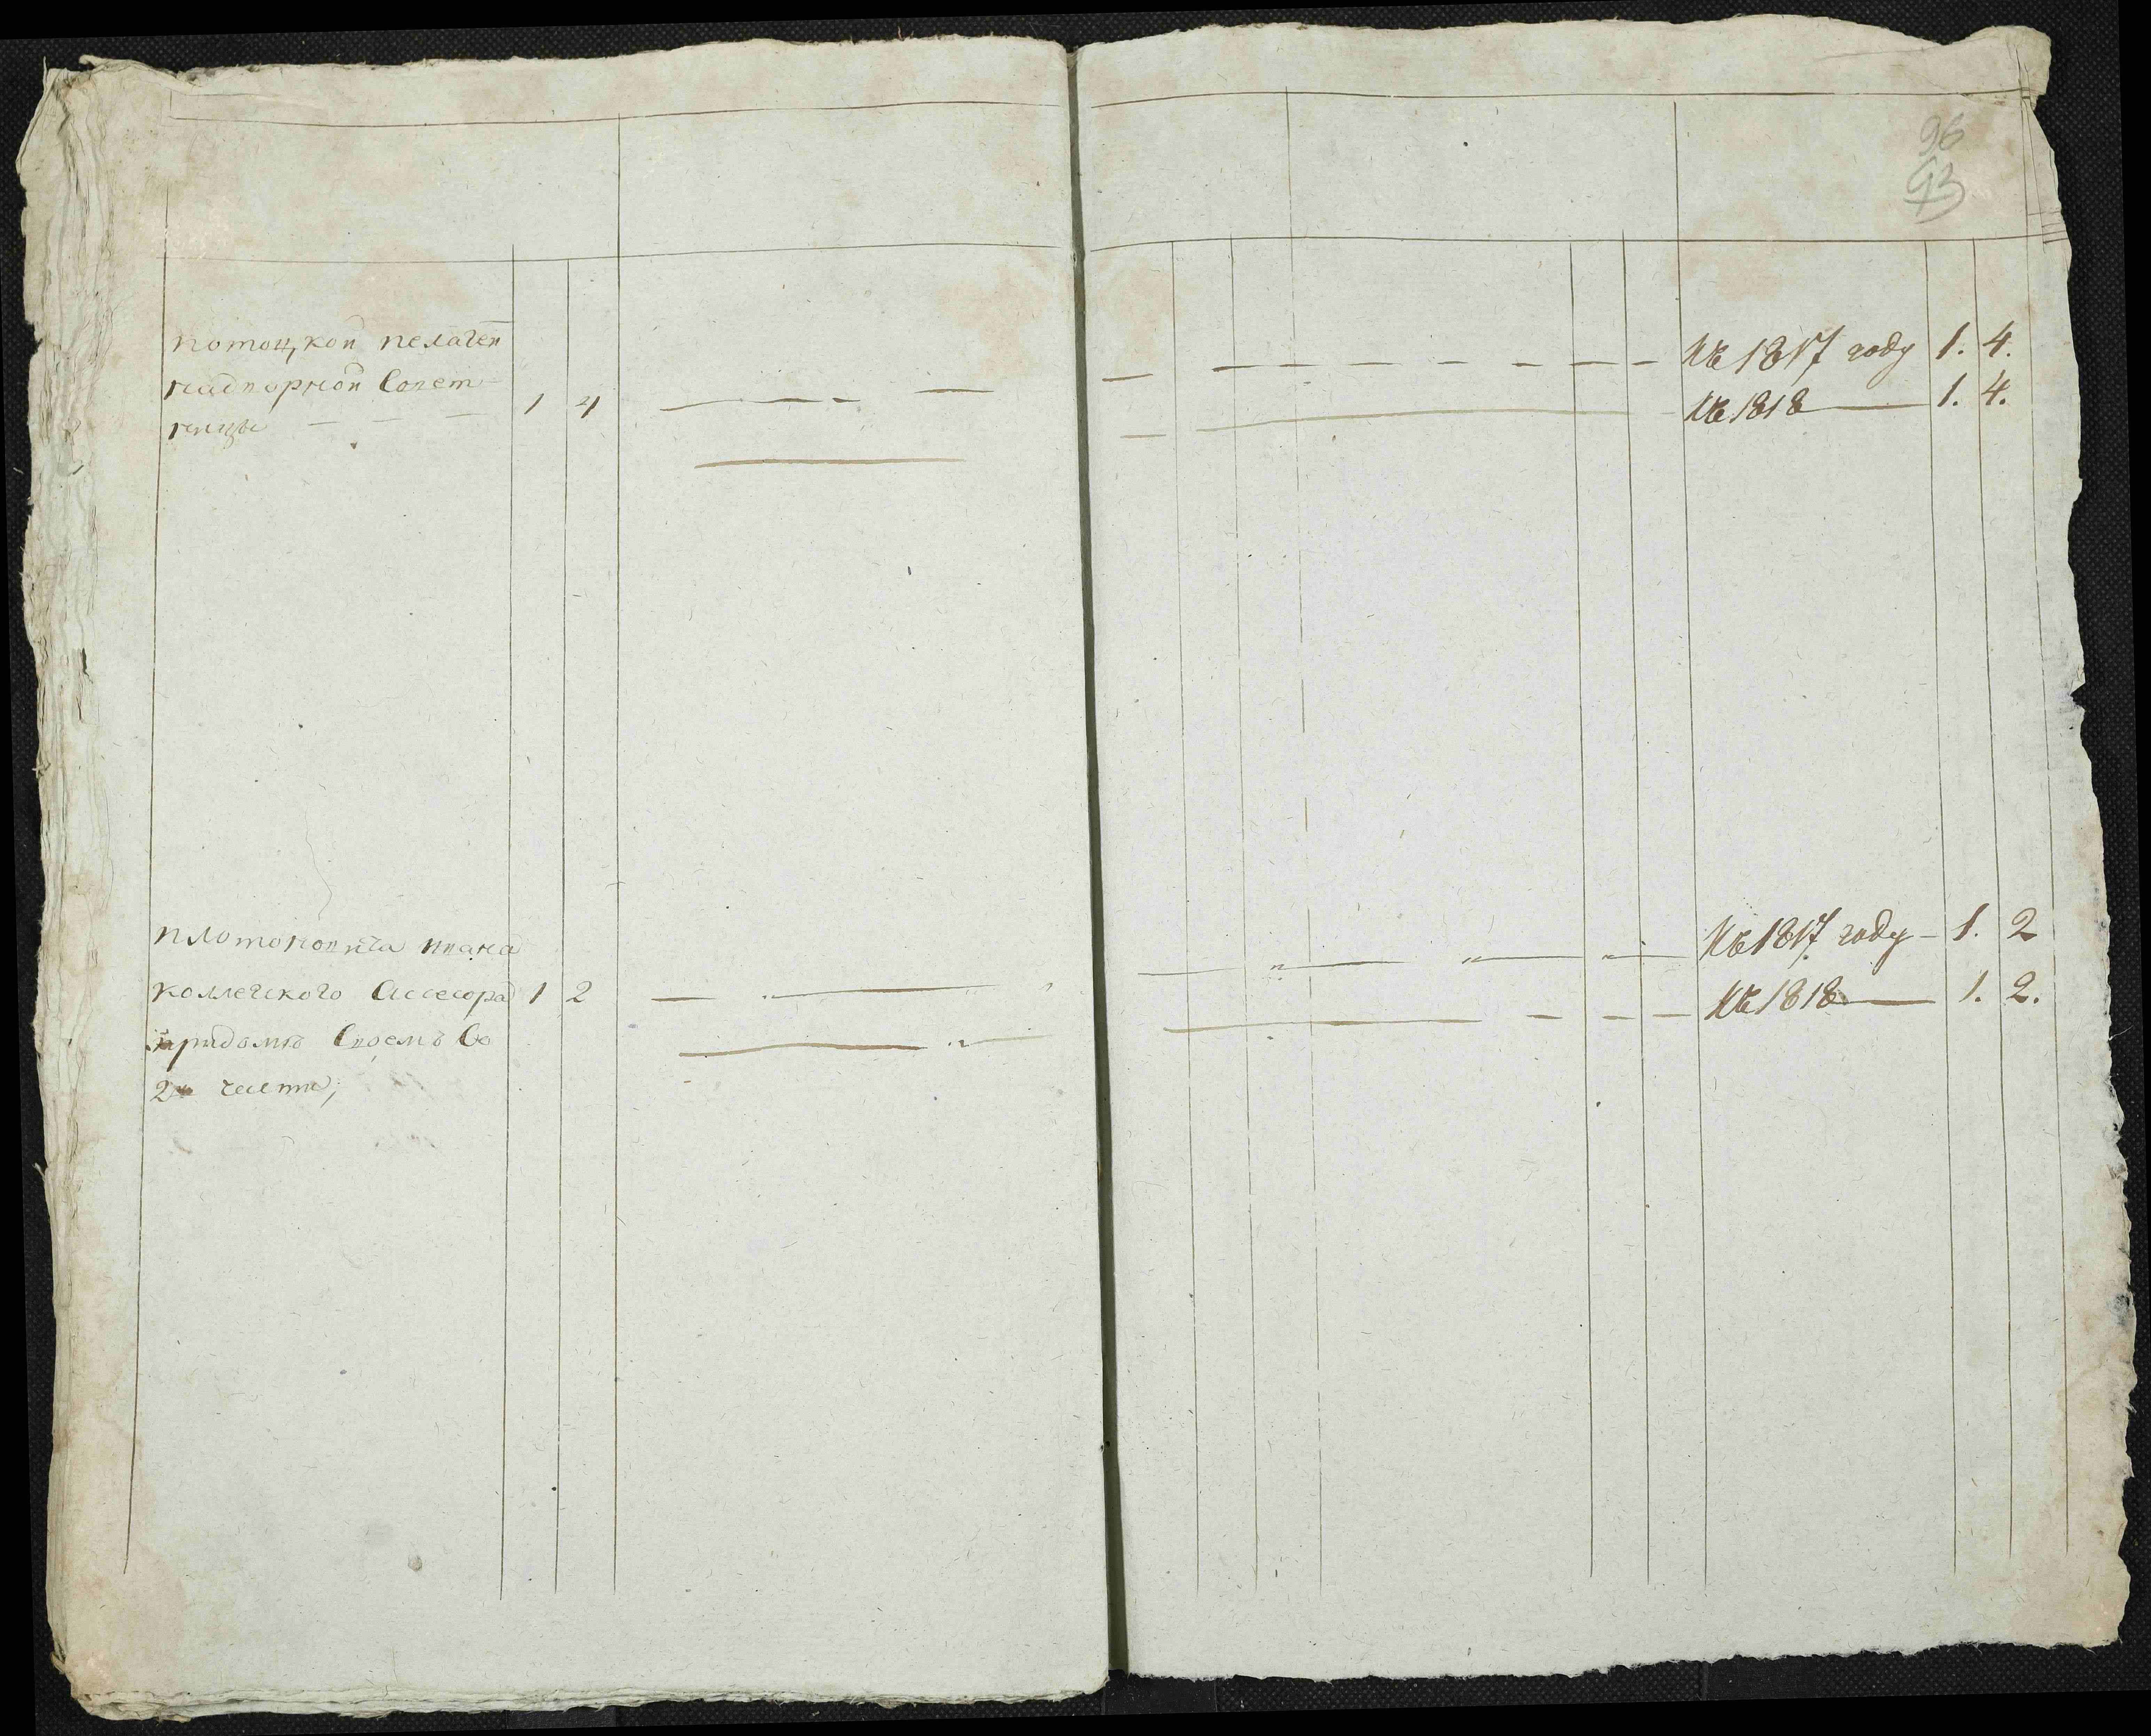 96
93
Потоцкой Пелагеи
надворной Совет-
ницы — — —
1 4
Къ 1817 году 1. 4.
Къ 1818 — 1. 4.
Плотоновича ивана
коллегского Ассесора 1 2
придомъ Своемъ Во
2й части;
Къ 1817 году — 1. 2
Къ 1818 — 1. 2.